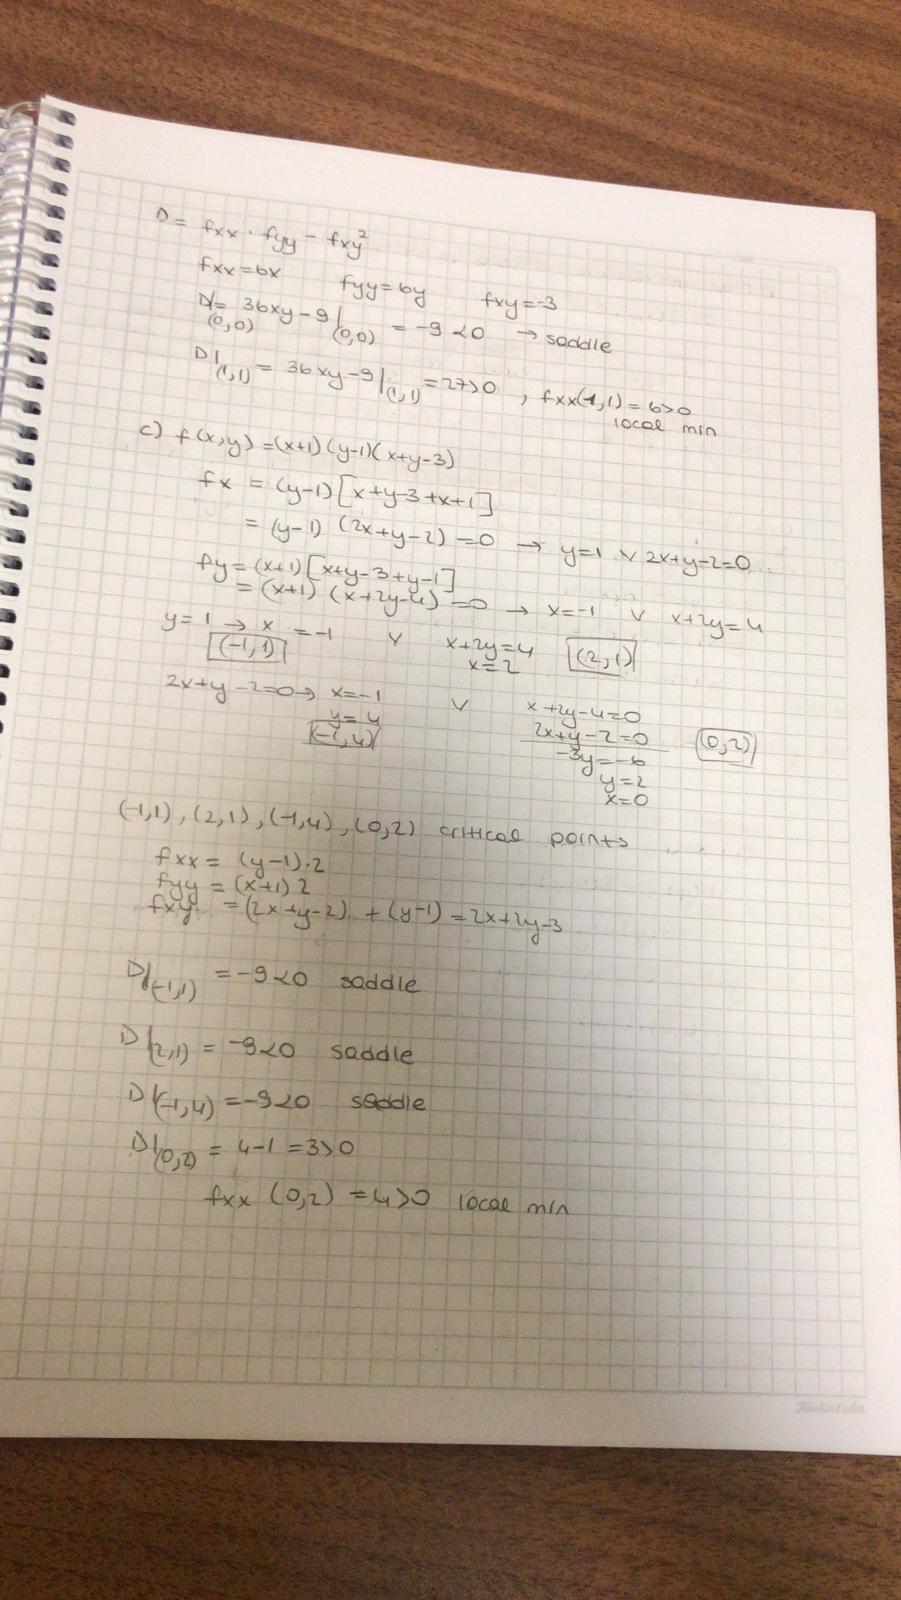 D = fxx · fyy - fxy²
fxx = 6x fyy = 6y fxy = -3
D|(0,0) = 36xy - 9|(0,0) = -9 < 0 → saddle
D|(1,1) = 36xy - 9|(1,1) = 27 > 0 , fxx(1,1) = 6 > 0
local min
c) f(x,y) = (x+1)(y-1)(x+y-3)
fx = (y-1)[x+y-3+x+1]
= (y-1) (2x+y-2) = 0 → y=1 ∨ 2x+y-2=0
fy = (x+1)[x+y-3+y-1]
= (x+1) (x+2y-4) = 0 → x=-1 ∨ x+2y=4
y=1 → x = -1 ∨ x+2y=4 (2,1)
(-1,1) x=2
2x+y-2=0 → x=-1 ∨ x+2y-4=0
y=4 2x+y-2=0 (0,2)
(-1,4) -3y=-6
y=2
x=0
(-1,1), (2,1), (-1,4), (0,2) critical points
fxx = (y-1).2
fyy = (x+1) 2
fxy = (2x+y-2) + (y-1) = 2x+2y-3
D|(-1,1) = -9 < 0 saddle
D|(2,1) = -9 < 0 saddle
D|(-1,4) = -9 < 0 saddle
D|(0,2) = 4-1 = 3 > 0
fxx (0,2) = 4 > 0 local min